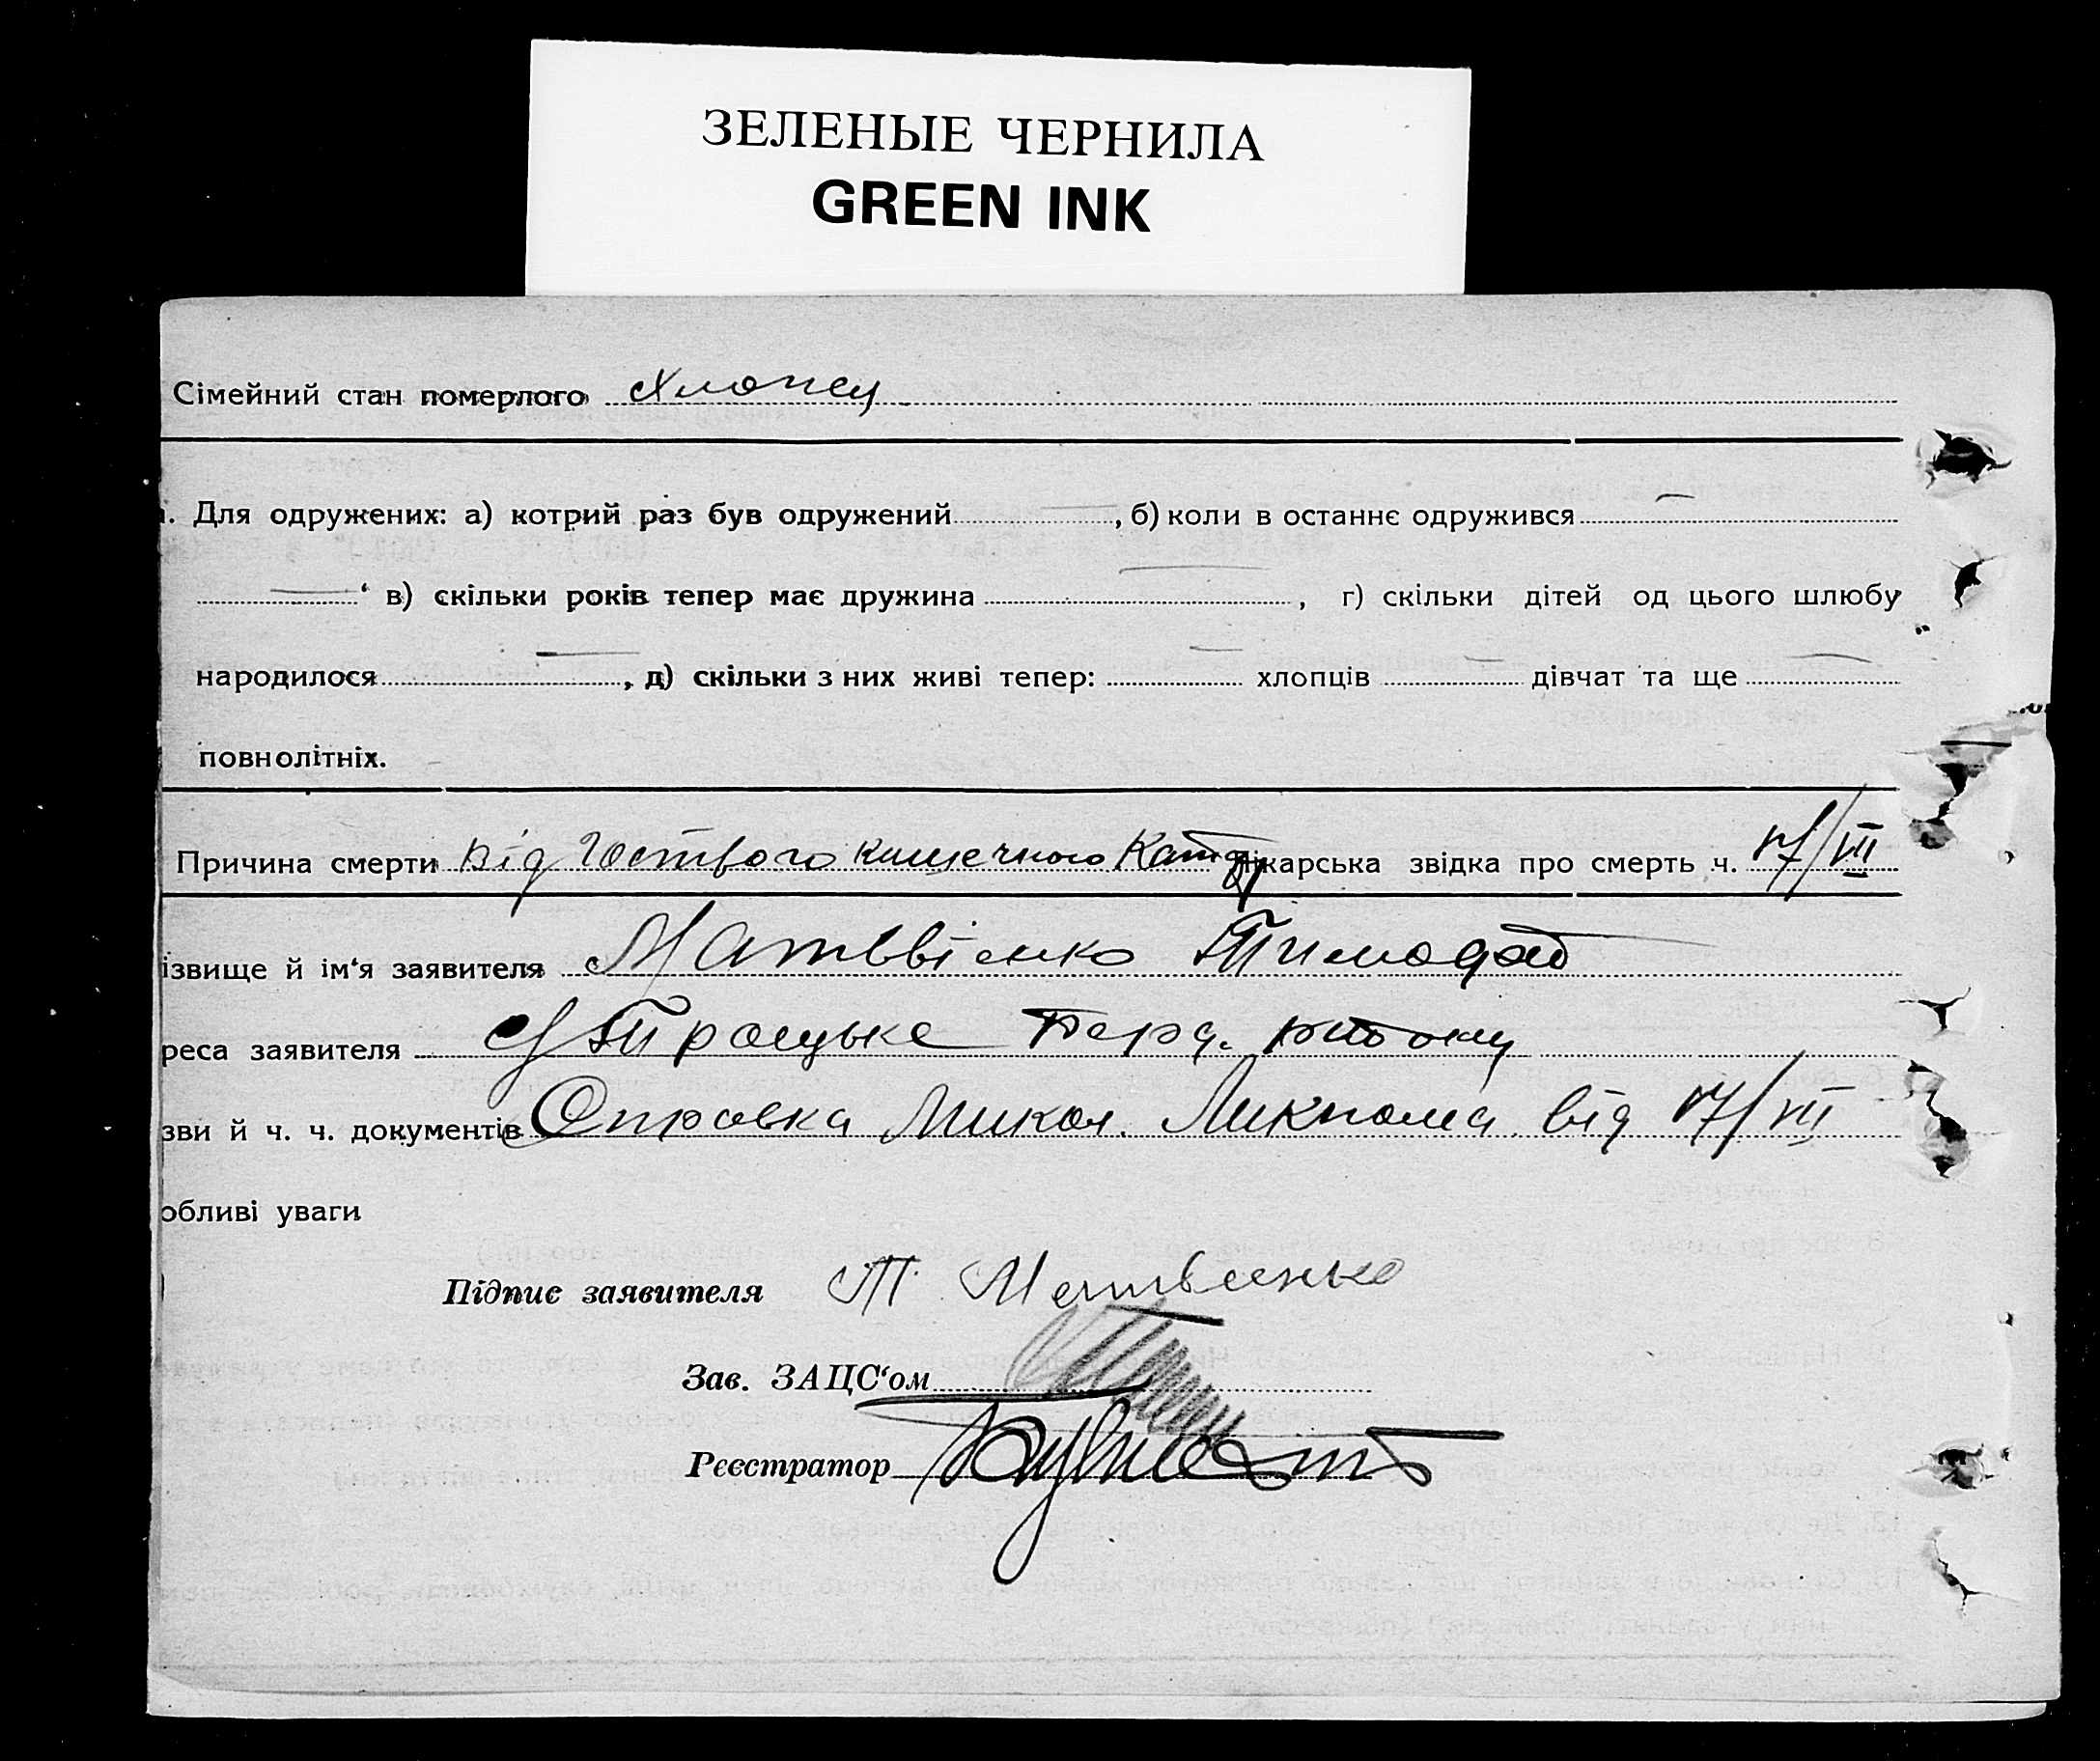 ЗЕЛЕНЫЕ ЧЕРНИЛА
GREEN INK
Сімейний стан померлого хлопец
Для одружених: а) котрий раз був одружений , б) коли в останнє одружився
в) скільки років тепер має дружина , г) скільки дітей од цього шлюбу
народилося , д) скільки з них живі тепер: хлопців дівчат та ще
повнолітніх.
Причина смерти від гострого кишечного лікарська звідка про смерть ч. 17/VII
ізвище й ім‘я заявителя Матввієнко
реса заявителя Троцьке Берд. району
зви й ч. ч. документів Справка Микол. Ликпома від 17/VII
обливі уваги
Підпис заявителя Т. Матвеенко
Зав. ЗАЦС‘ом
Реєстратор